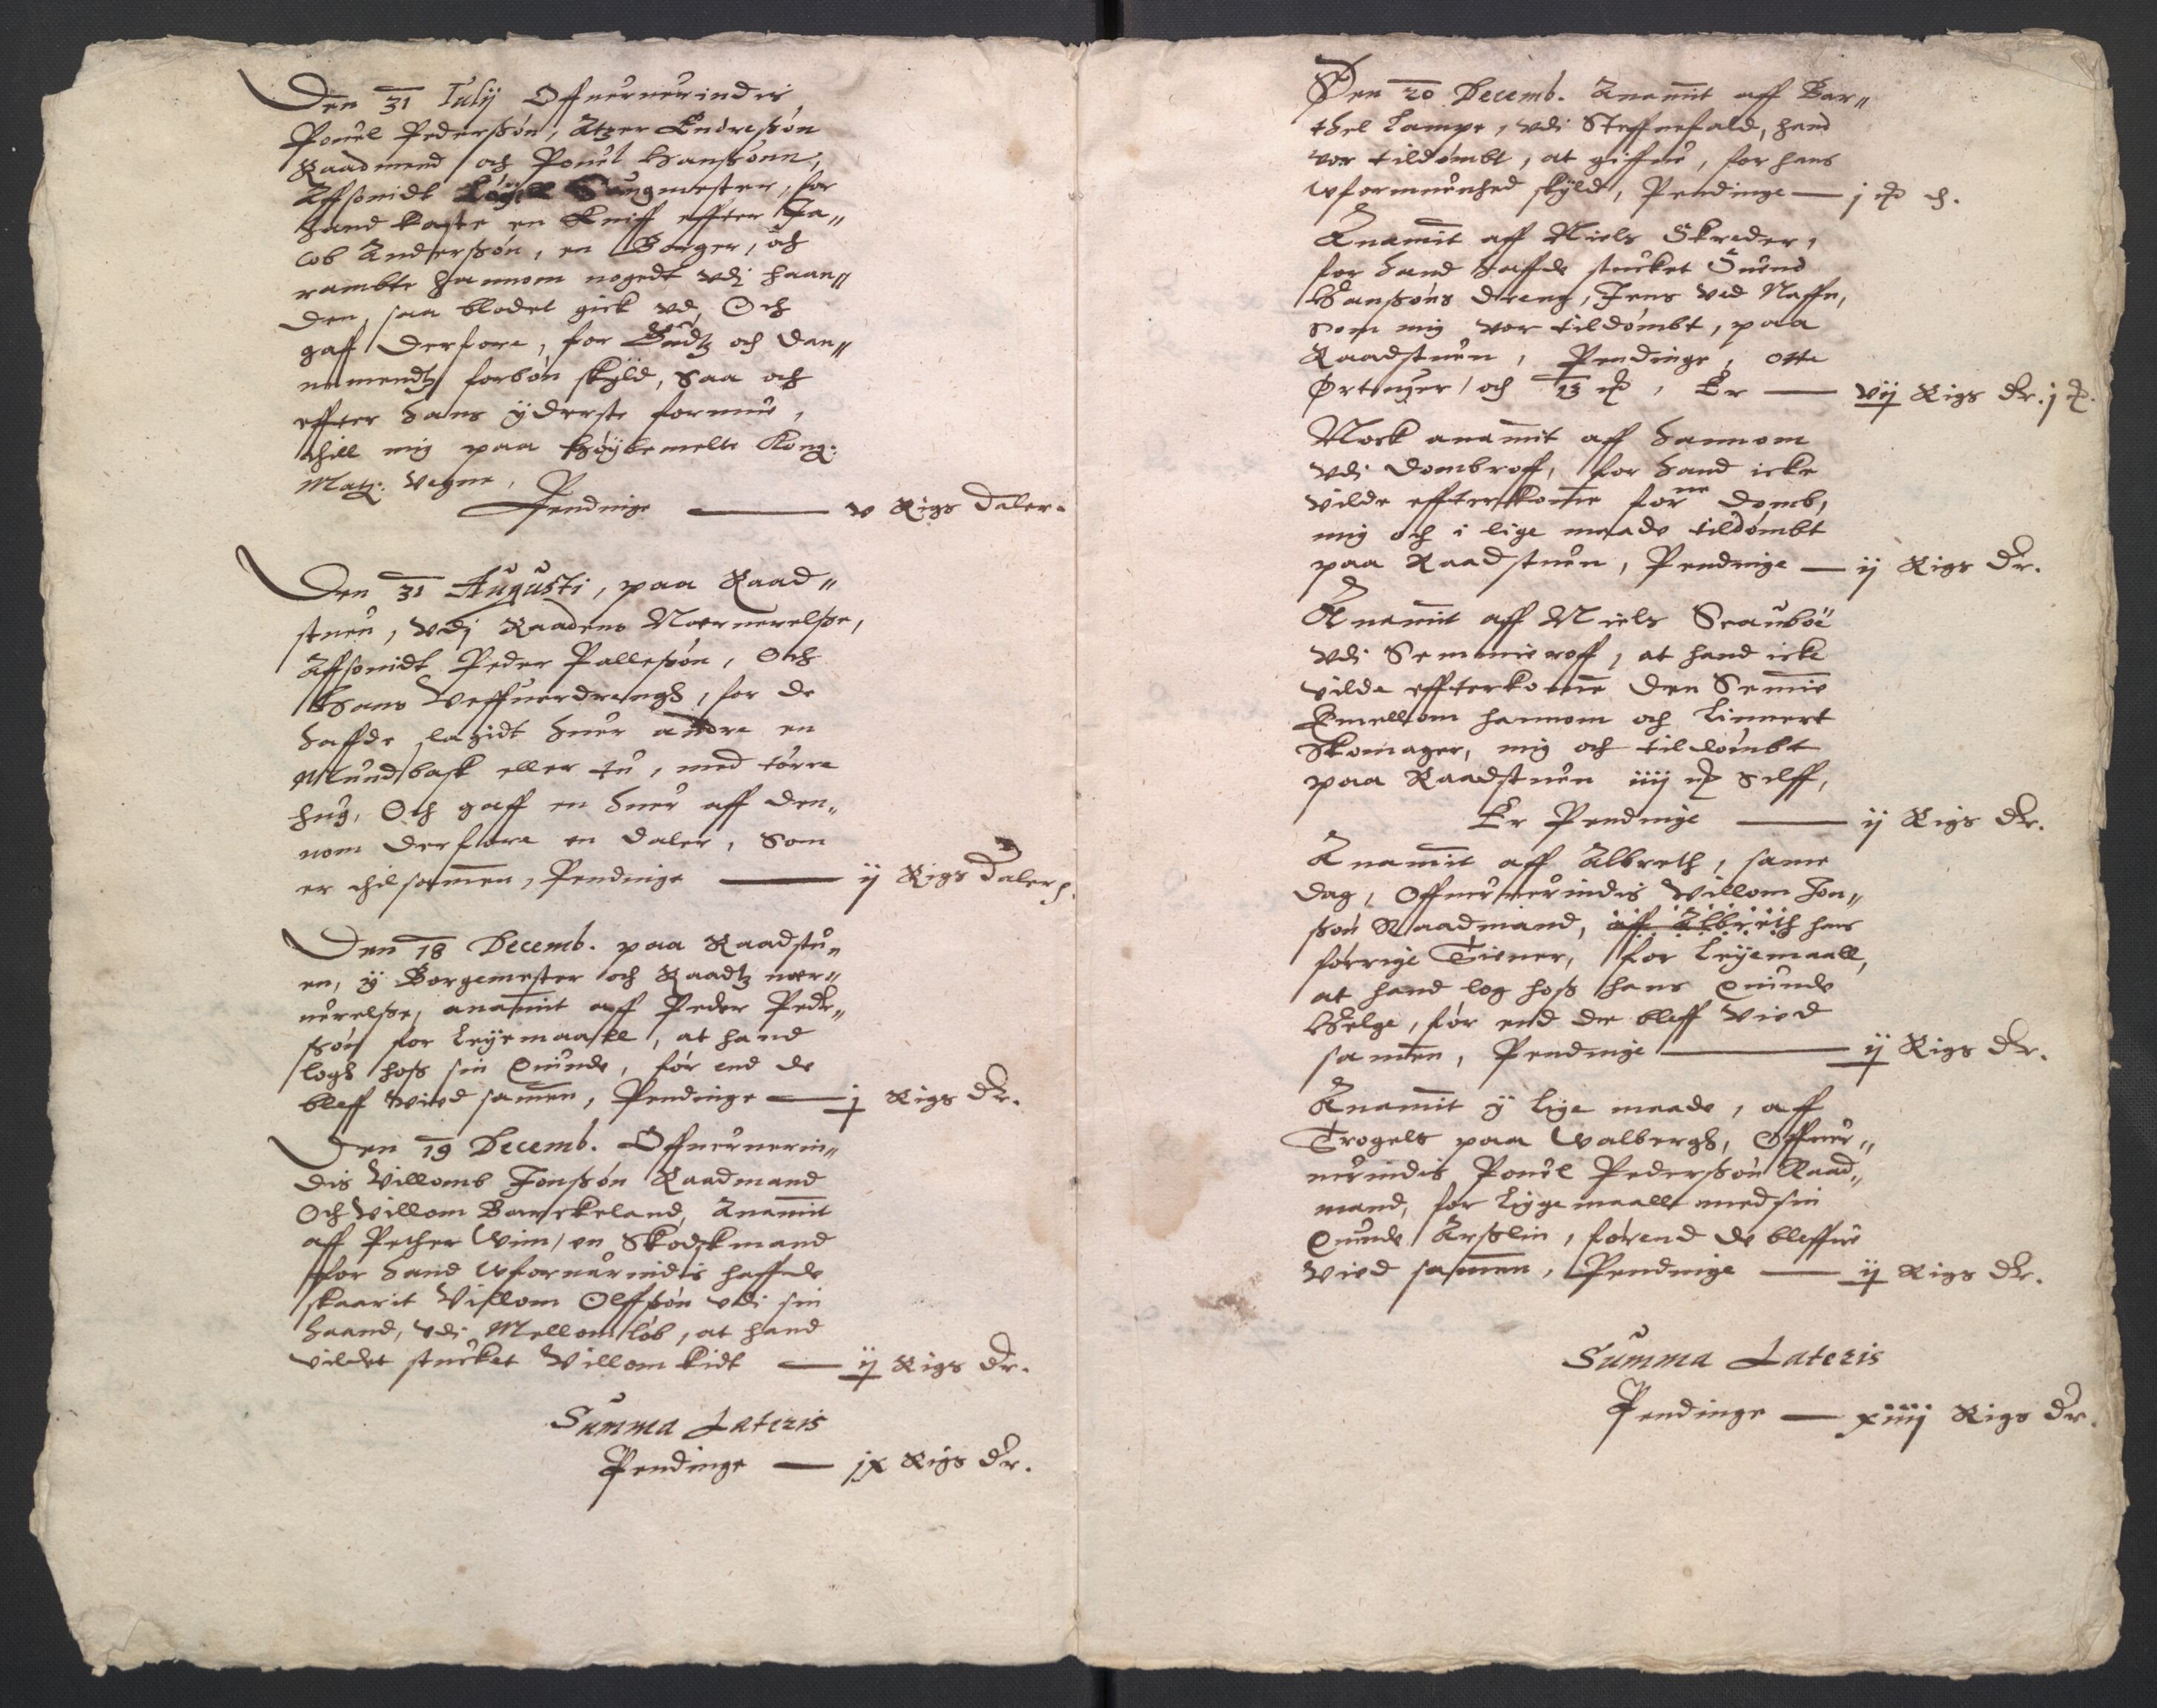 Den 31 Julij Offueruerindis
Pouel Pederßøn, Atzer Endreßøn
Raadmend och Pouel Hanßønn,
Affsonidt Sangmester, for
hand kaste en Kniff effter Ja„
cob Anderßøn, en Borger, och
rambte hannom nogedt vdj haan„
den, saa blodet gick vd, Och
gaff derfore, for Raadtz och dan„
nemendtz forbøn skyld, saa och
effter hans yderste formue,
thill mig paa høybemelte Kong:
Matz: vegne,
Pendinge — v Rigs daler.
Den 31 Augusti, paa Raad„
stuen, vdj Raadens Neruerelße,
Affsonidt Peder Palleßøn, Och
Hans Veffuerdrengh, for de
haffde slagidt huer andre en
Mundbask eller tu, med tørre
hug, Och gaff en huer aff den„
nom derfore en daler, Som
er thilsamen, Pendinge — ij Rigs daler.
Den 18 Decemb. paa Raadstu„
en, y Borgemester och Raadtz ner„
uerelße, anamit aff Peder Peder„
ßøn for Leyemaall, at hand
logh hoß sin Quinde, før end de
bleff viend samen, Pendinge — j Rigs dr.
Den 19 Decemb. Offueruerin„
dis Villomb Jonßøn Raadmand
Och Villom Anamit
aff Pether Wim, en Skodskmand
for hand wforuarindis haffde
skaarit Villom Olffßøn vdi sin
haand, vdi Mellomløb, at hand
vildet stucket Villom kidt — ij Rigs dr.
Summa Lateris
Pendinge — jx Rigs dr.
Den 20 Decemb. Anamit aff Bar„
thel Lampe, vdi Steffnefald, hand
vor tildømbt, at giffue, for hans
wformuenhed skyld, Pendinge — j
Anamit aff Niels Skreder,
for hand haffde stucket Suend
Hanßøns dreng, Jens ved Naffn,
som mig vor tildømbt, paa
Raadstuen, Pendinge, otte
Ørtuger, och 13 , Er — vij Rigs dr. j
Nock anamit aff hannom
vdi dombroff, for hand icke
vilde effterkome forne domb,
mig och i lige maade tildømbt
paa Raadstuen, Pendinge — ij Rigs dr.
Anamit aff Niels Scaubøe
vdi Semmieroff, at hand icke
vilde effterkome den Semie
Emellom hannom och Linnert
Skomager, mig och tildømbt
paa Raadstuen iiij Sølff,
Er Pendinge — ij Rigs dr.
Anamit aff Albreth, same
dag, Offueruerindis Villom Jon„
ßøn Raadmand, aff Albreth hans
forrige Tiener, for Leyemaall,
at hand log hoß hans Quinde
Helge, før end de bleff viend
samen, Pendinge — ij Rigs dr.
Anamit y lige maade, aff
Trogels paa Walbergh, Offuer„
uerindis Pouel Pederßøn Raad„
mand, for Leyge maall med sin
Quinde Aeßlin, førend de bleffue
viend samen, Pendinge — ij Rigs dr.
Summa Lateris
Pendinge — xiiij Rigs dr.